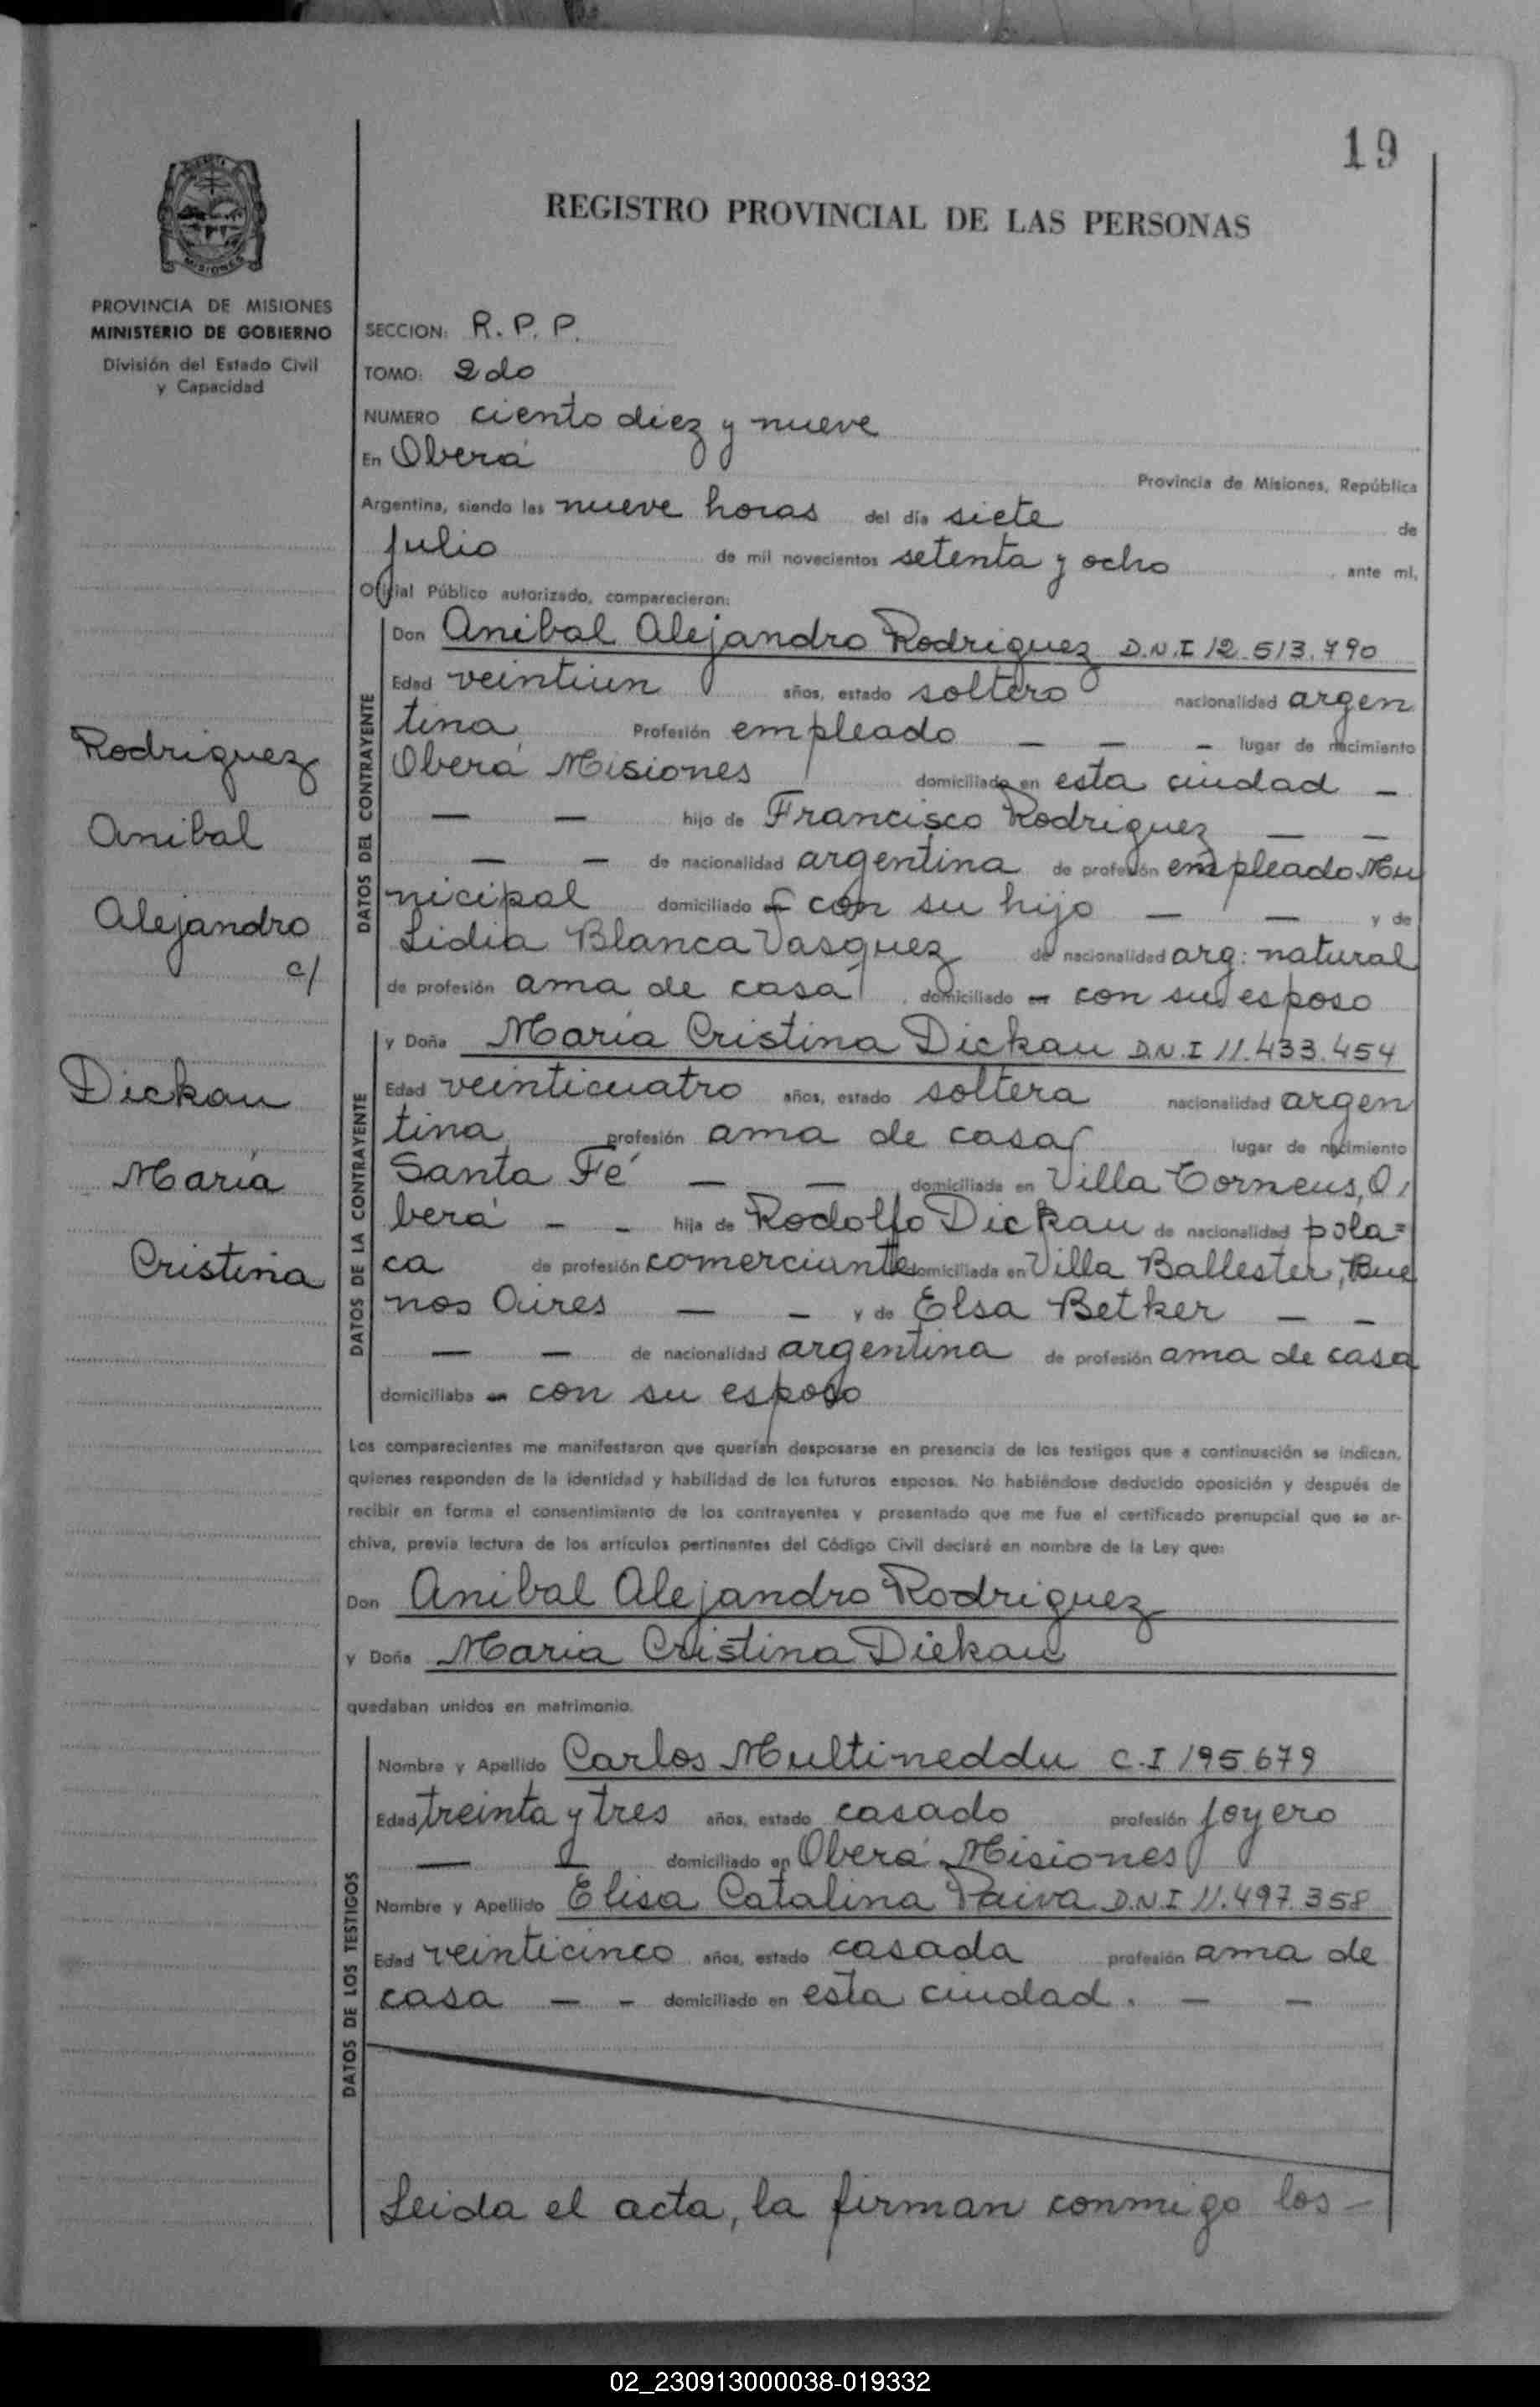 19
REGISTRO PROVINCIAL DE LAS PERSONAS
MISIONES
PROVINCIA DE MISIONES
MINISTERIO DE GOBIERNO
División del Estado Civil
y Capacidad
Rodriguez
Anibal
Alejandro
c/
Dickau
María
Cristina
SECCION: R. P. P.
TOMO: 2do
NUMERO ciento diez y nueve
En Oberá
Provincia de Misiones, República
Argentina, siendo las nueve horas del día siete de
julio de mil novecientos setenta y ocho, ante mí,
Oficial Público autorizado, comparecieron:
DATOS DEL CONTRAYENTE
Don Anibal Alejandro Rodriguez D.N.I 12.513.790
Edad veintiun años, estado soltero nacionalidad argen
tina Profesión empleado — — — lugar de nacimiento
Oberá Misiones domiciliado en esta ciudad —
— — hijo de Francisco Rodriguez — —
— — de nacionalidad argentina de profesión empleado Mu
nicipal domiciliado en con su hijo — — y de
Lidia Blanca Vasquez de nacionalidad arg: natural
de profesión ama de casa domiciliado en con su esposo
DATOS DE LA CONTRAYENTE
y Doña María Cristina Dickau D.N.I 11.433.454
Edad veinticuatro años, estado soltera nacionalidad argen
tina profesión ama de casa lugar de nacimiento
Santa Fé — — domiciliada en Villa Torneus, O,
berá - - hija de Rodolfo Dickau de nacionalidad pola=
ca de profesión comerciante domiciliada en Villa Ballester, Bue
nos Aires — - y de Elsa Betker — —
— — de nacionalidad argentina de profesión ama de casa
domiciliaba en con su esposo
Los comparecientes me manifestaron que querían desposarse en presencia de los testigos que a continuación se indican,
quienes responden de la identidad y habilidad de los futuros esposos. No habiéndose deducido oposición y después de
recibir en forma el consentimiento de los contrayentes y presentado que me fue el certificado prenupcial que se ar-
chiva, previa lectura de los artículos pertinentes del Código Civil declaré en nombre de la Ley que:
Don Anibal Alejandro Rodriguez
y Doña Maria Cristina Dickau
quedaban unidos en matrimonio.
DATOS DE LOS TESTIGOS
Nombre y Apellido Carlos Multineddu C.I 195.679
Edad treinta y tres años, estado casado profesión joyero
— — domiciliado en Oberá Misiones
Nombre y Apellido Elisa Catalina Paiva D.N.I 11.497.358
Edad veinticinco años, estado casada profesión ama de
casa — - domiciliado en esta ciudad. — —
Leida el acta, la firman conmigo los —
02_230913000038-019332